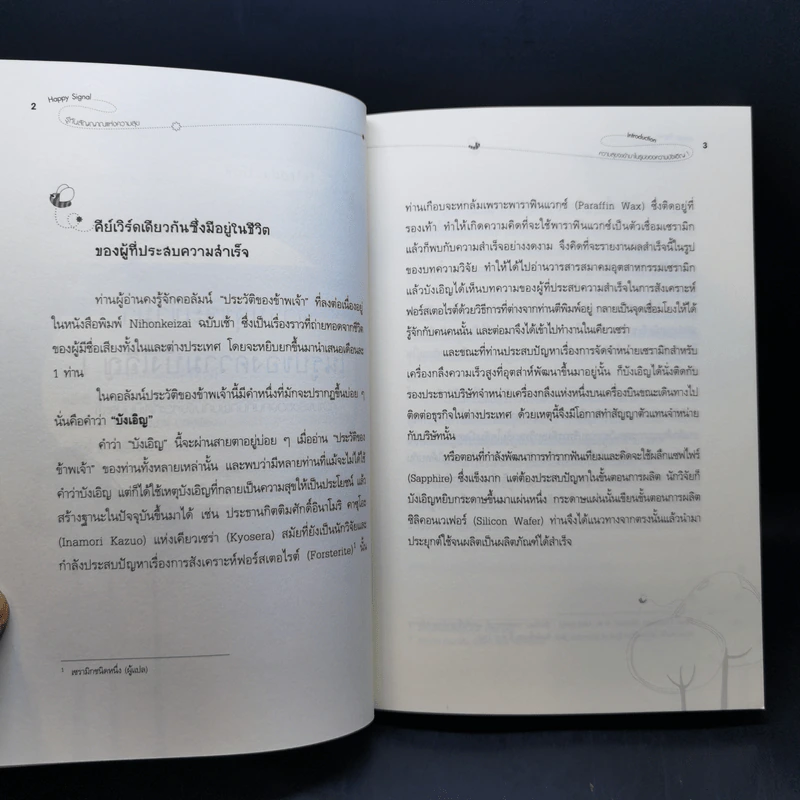 2
Happy Signal
คีย์เวิร์ดเดียวกันซึ่งมีอยู่ในชีวิต
ของผู้ที่ประสบความสำเร็จ
ท่านผู้อ่านคงรู้จักคอลัมน์ “ประวัติของข้าพเจ้า” ที่ลงต่อเนื่องอยู่
ในหนังสือพิมพ์ Nihonkeizai ฉบับเช้า ซึ่งเป็นเรื่องราวที่ถ่ายทอดจากชีวิต
ของผู้มีชื่อเสียงทั้งในและต่างประเทศ โดยจะหยิบยกขึ้นมานำเสนอเดือนละ
1 ท่าน
ในคอลัมน์ประวัติของข้าพเจ้านี้มีคำหนึ่งที่มักจะปรากฏขึ้นบ่อย ๆ
นั่นคือคำว่า “บังเอิญ”
คำว่า “บังเอิญ” นี้จะผ่านสายตาอยู่บ่อย ๆ เมื่ออ่าน “ประวัติของ
ข้าพเจ้า” ของท่านทั้งหลายเหล่านั้น และพบว่ามีหลายท่านที่แม้จะไม่ได้ใช้
คำว่าบังเอิญ แต่ก็ได้ใช้เหตุบังเอิญที่กลายเป็นความสุขให้เป็นประโยชน์ แล้ว
สร้างฐานะในปัจจุบันขึ้นมาได้ เช่น ประธานกิตติมศักดิ์อินาโมริ คาซุโอะ
(Inamori Kazuo) แห่งเคียวเซร่า (Kyosera) สมัยที่ยังเป็นนักวิจัยและ
กำลังประสบปัญหาเรื่องการสังเคราะห์ฟอร์สเตอไรต์ (Forsterite)¹ นั้น
¹ เซรามิกชนิดหนึ่ง (ผู้แปล)
Introduction
3
ท่านเกือบจะหกล้มเพราะพาราฟินแวกซ์ (Paraffin Wax) ซึ่งติดอยู่ที่
รองเท้า ทำให้เกิดความคิดที่จะใช้พาราฟินแวกซ์เป็นตัวเชื่อมเซรามิก
แล้วก็พบกับความสำเร็จอย่างงดงาม จึงคิดที่จะรายงานผลสำเร็จนี้ในรูป
ของบทความวิจัย ทำให้ได้ไปอ่านวารสารสมาคมอุตสาหกรรมเซรามิก
แล้วบังเอิญได้เห็นบทความของผู้ที่ประสบความสำเร็จในการสังเคราะห์
ฟอร์สเตอไรต์ด้วยวิธีการที่ต่างจากท่านตีพิมพ์อยู่ กลายเป็นจุดเชื่อมโยงให้ได้
รู้จักกับคนคนนั้น และต่อมาจึงได้เข้าไปทำงานในเคียวเซร่า
และขณะที่ท่านประสบปัญหาเรื่องการจัดจำหน่ายเซรามิกสำหรับ
เครื่องกลึงความเร็วสูงที่อุตส่าห์พัฒนาขึ้นมาอยู่นั้น ก็บังเอิญได้นั่งติดกับ
รองประธานบริษัทจำหน่ายเครื่องกลึงแห่งหนึ่งบนเครื่องบินขณะเดินทางไป
ติดต่อธุรกิจในต่างประเทศ ด้วยเหตุนี้จึงมีโอกาสทำสัญญาตัวแทนจำหน่าย
กับบริษัทนั้น
หรือตอนที่กำลังพัฒนาการทำรากฟันเทียมและคิดจะใช้ผลึกแซฟไฟร์
(Sapphire) ซึ่งแข็งมาก แต่ต้องประสบปัญหาในขั้นตอนการผลิต นักวิจัยก็
บังเอิญหยิบกระดาษขึ้นมาแผ่นหนึ่ง กระดาษแผ่นนั้นเขียนขั้นตอนการผลิต
ซิลิคอนเวเฟอร์ (Silicon Wafer) ท่านจึงได้แนวทางจากตรงนั้นแล้วนำมา
ประยุกต์ใช้จนผลิตเป็นผลิตภัณฑ์ได้สำเร็จ